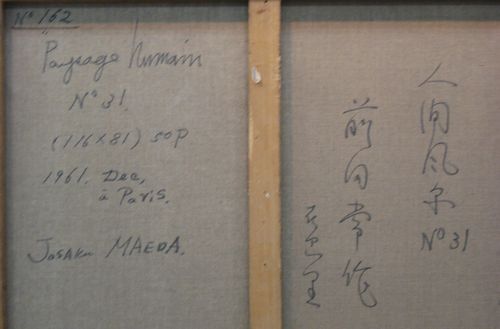 Nº 162
"Paysage humain
Nº 31.
(116×81) 50P
1961. Dec,
à Paris.
Josaku MAEDA.
人間風景 Nº31
前田常作
於巴里